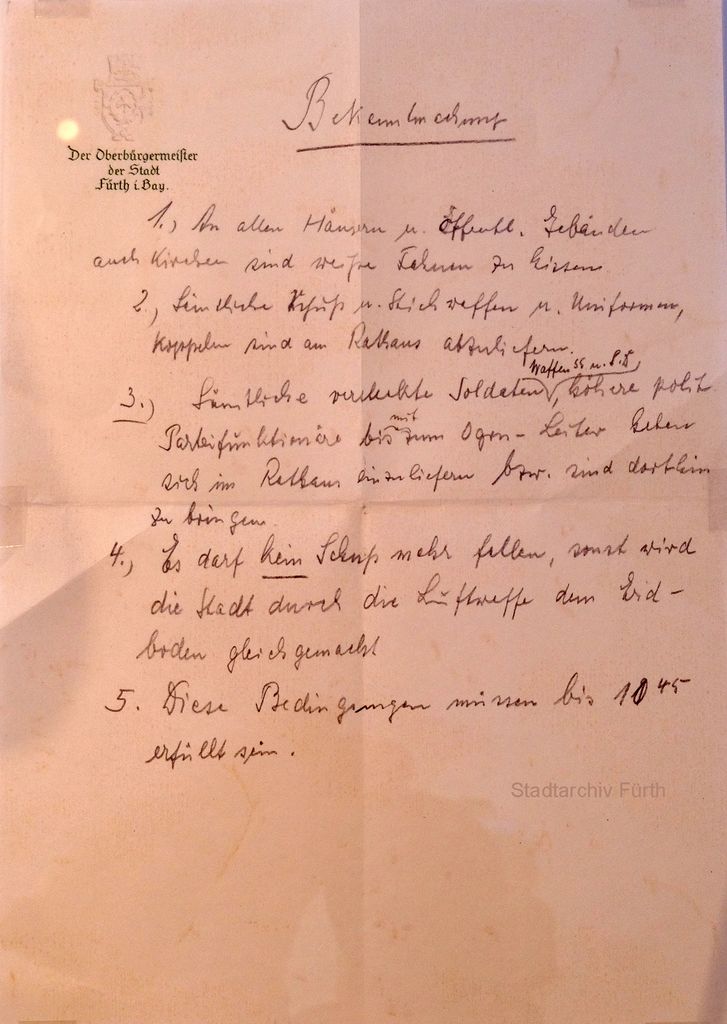 Bekanntmachung
Der Oberbürgermeister
der Stadt
Fürth i. Bay.
1.) An allen Häusern u. öffentl. Gebäuden
auch Kirchen sind weiße Fahnen zu hissen
2.) Sämtliche Schuß u. Stichwaffen u. Uniformen,
Koppeln sind am Rathaus abzuliefern.
Waffen SS u. S.D.
3.) Sämtliche versteckte Soldaten, höhere polit.
mit
Parteifunktionäre bis zum Ogru-Leiter haben
sich im Rathaus einzuliefern bzw. sind dorthin
zu bringen.
4.) Es darf kein Schuß mehr fallen, sonst wird
die Stadt durch die Luftwaffe dem Erd-
boden gleichgemacht
5. Diese Bedingungen müssen bis 10 45
erfüllt sein.
Stadtarchiv Fürth